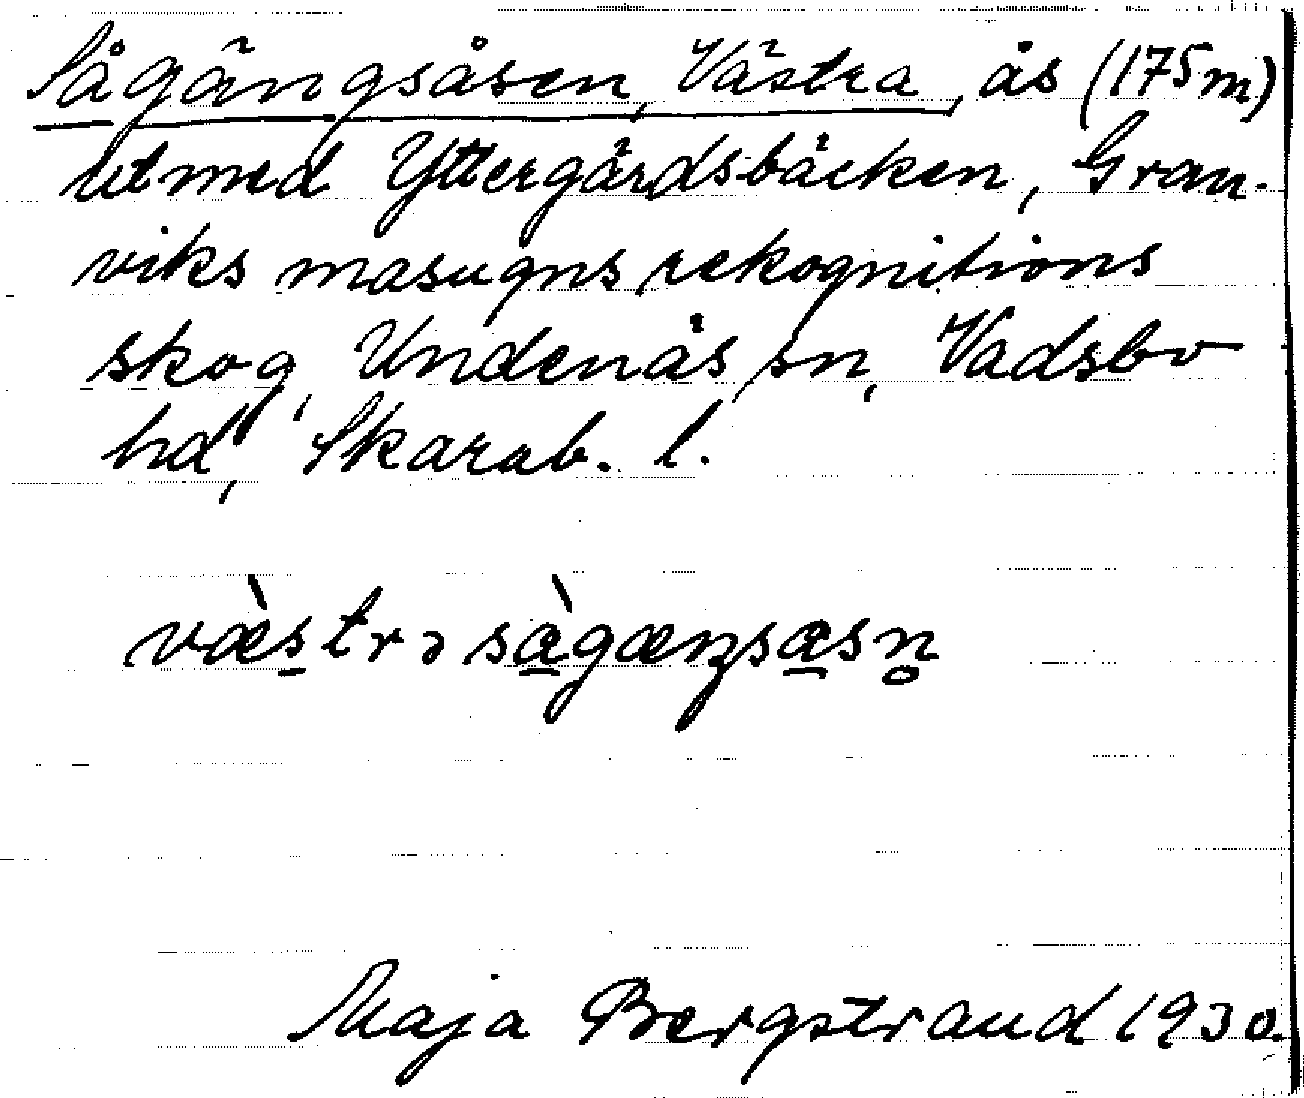 Sågängsåsen, Västra, ås (175 m)
utmed Yttergärdsbäcken, Gran-
viks masugns rekognitions
skog, Undenäs sn, Vadsbo
hd, Skarab. l.
væ̀strɔ sàgæŋsasn̥
Maja Bergstrand 1930.